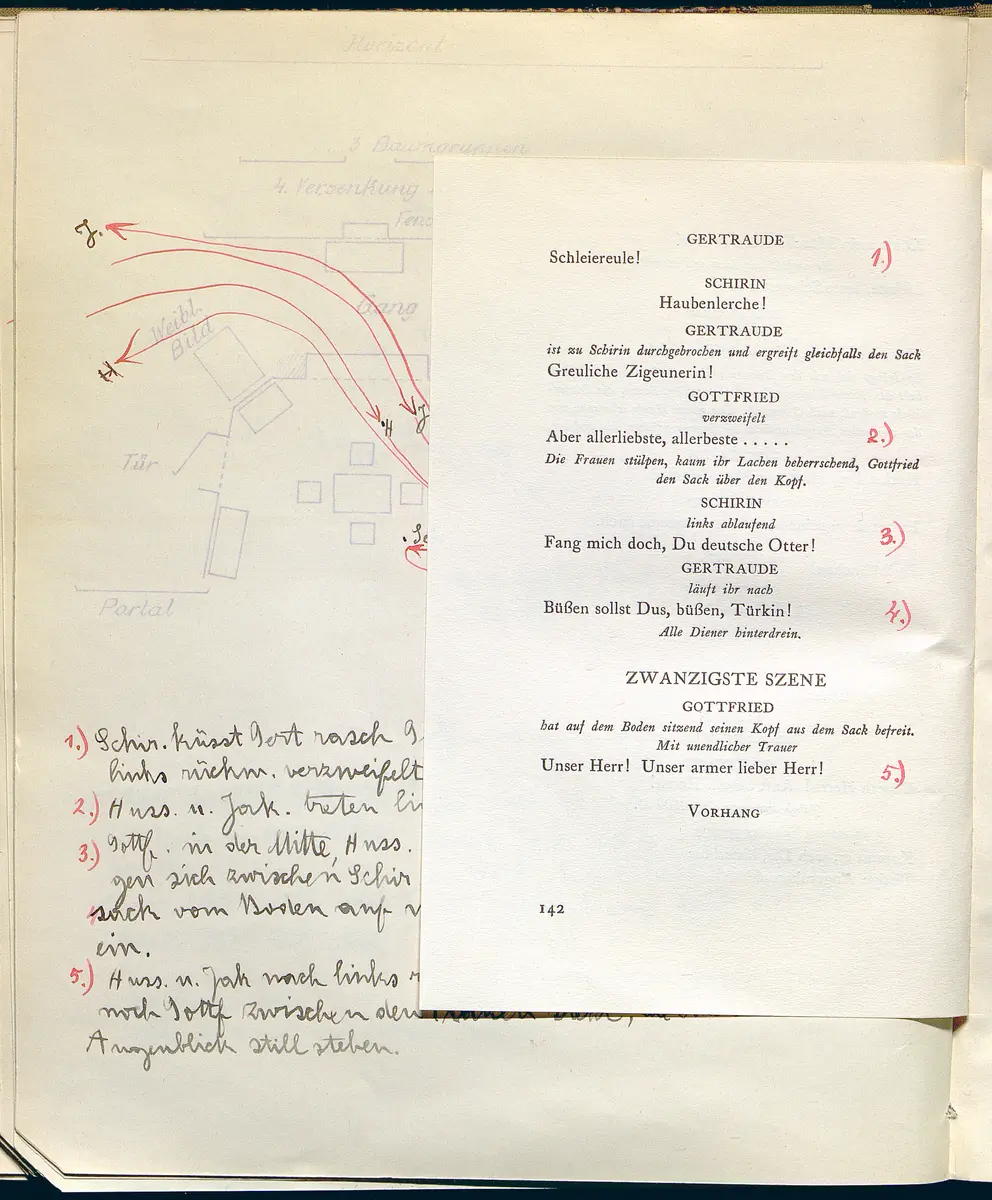 Horizont
3 Baumgruppen
4. Versenkung
J.
Gang
Weibl.
Bild
H
H
J
Tür
Portal
GERTRAUDE
1.)
Schleiereule!
SCHIRIN
Haubenlerche!
GERTRAUDE
ist zu Schirin durchgebrochen und ergreift gleichfalls den Sack
Greuliche Zigeunerin!
GOTTFRIED
verzweifelt
Aber allerliebste, allerbeste . . . . .
2.)
Die Frauen stülpen, kaum ihr Lachen beherrschend, Gottfried
den Sack über den Kopf.
SCHIRIN
links ablaufend
Fang mich doch, Du deutsche Otter!
3.)
GERTRAUDE
läuft ihr nach
Büßen sollst Dus, büßen, Türkin!
4.)
Alle Diener hinterdrein.
ZWANZIGSTE SZENE
GOTTFRIED
hat auf dem Boden sitzend seinen Kopf aus dem Sack befreit.
Mit unendlicher Trauer
Unser Herr! Unser armer lieber Herr!
5.)
VORHANG
142
1.) Schir. küsst Gert rasch
links rückw. verzweifelt
2.) Huss. u. Jak. treten
3.) Gottf. in der Mitte, Huss.
gen sich zwischen Schir
sack vom Boden auf
ein.
5.) Huss. u. Jak nach links
noch Gottf zwischen den
Augenblick still stehen.